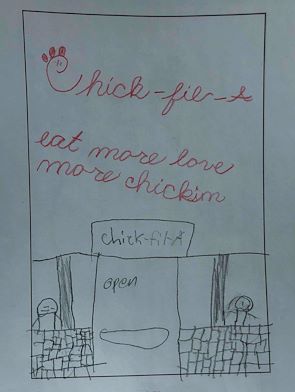 Chick-fil-A
eat more love
more chickin
chick-fil-A
open